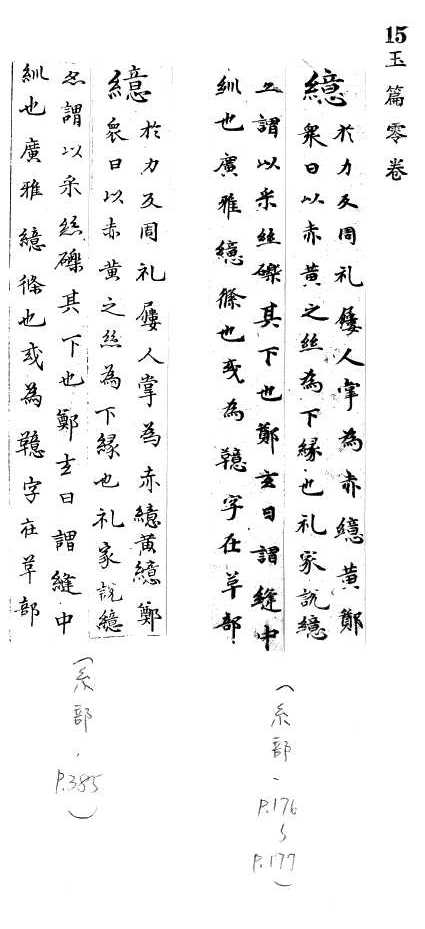 15玉篇零卷
繶於力反周礼屨人掌為赤繶黄鄭
衆曰以赤黄之丝為下縁也礼家説繶
之謂以采丝礫其下也鄭玄曰謂縫中
紃也廣雅繶絛也或為韺字在草部
(糸部、P.176〜P.177)
繶於力反周礼屨人掌為赤繶黄繶鄭
衆曰以赤黄之丝為下縁也礼家説繶
名謂以采丝礫其下也鄭玄曰謂縫中
紃也廣雅繶絛也或為字在草部
(糸部、P.385)